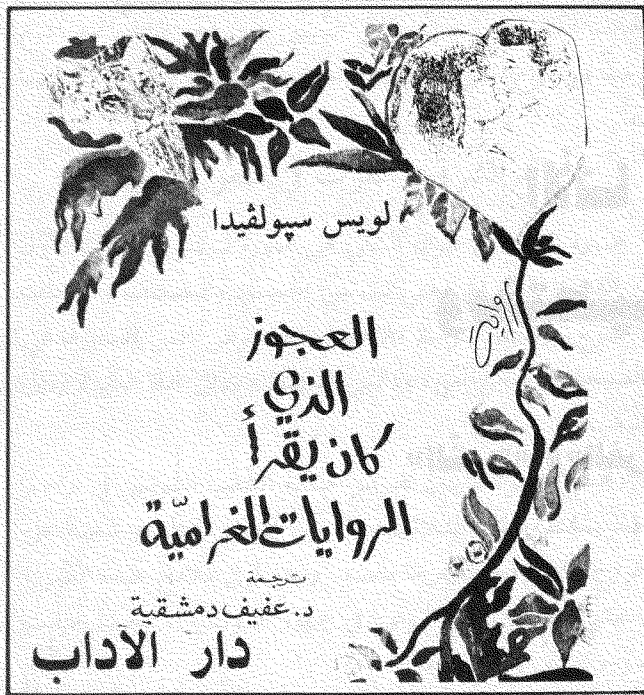 لويس سپولڤيدا
رواية
العجوز
الذي
كان يقرأ
الروايات الغراميّة
ترجمة
د. عفيف دمشقية
دار الآداب